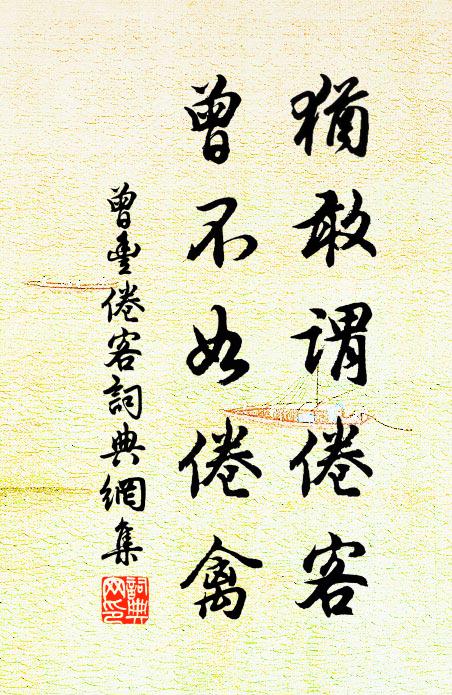 猶敢謂倦客
曾不如倦禽
曾豐倦客詞典網集
詞典網印